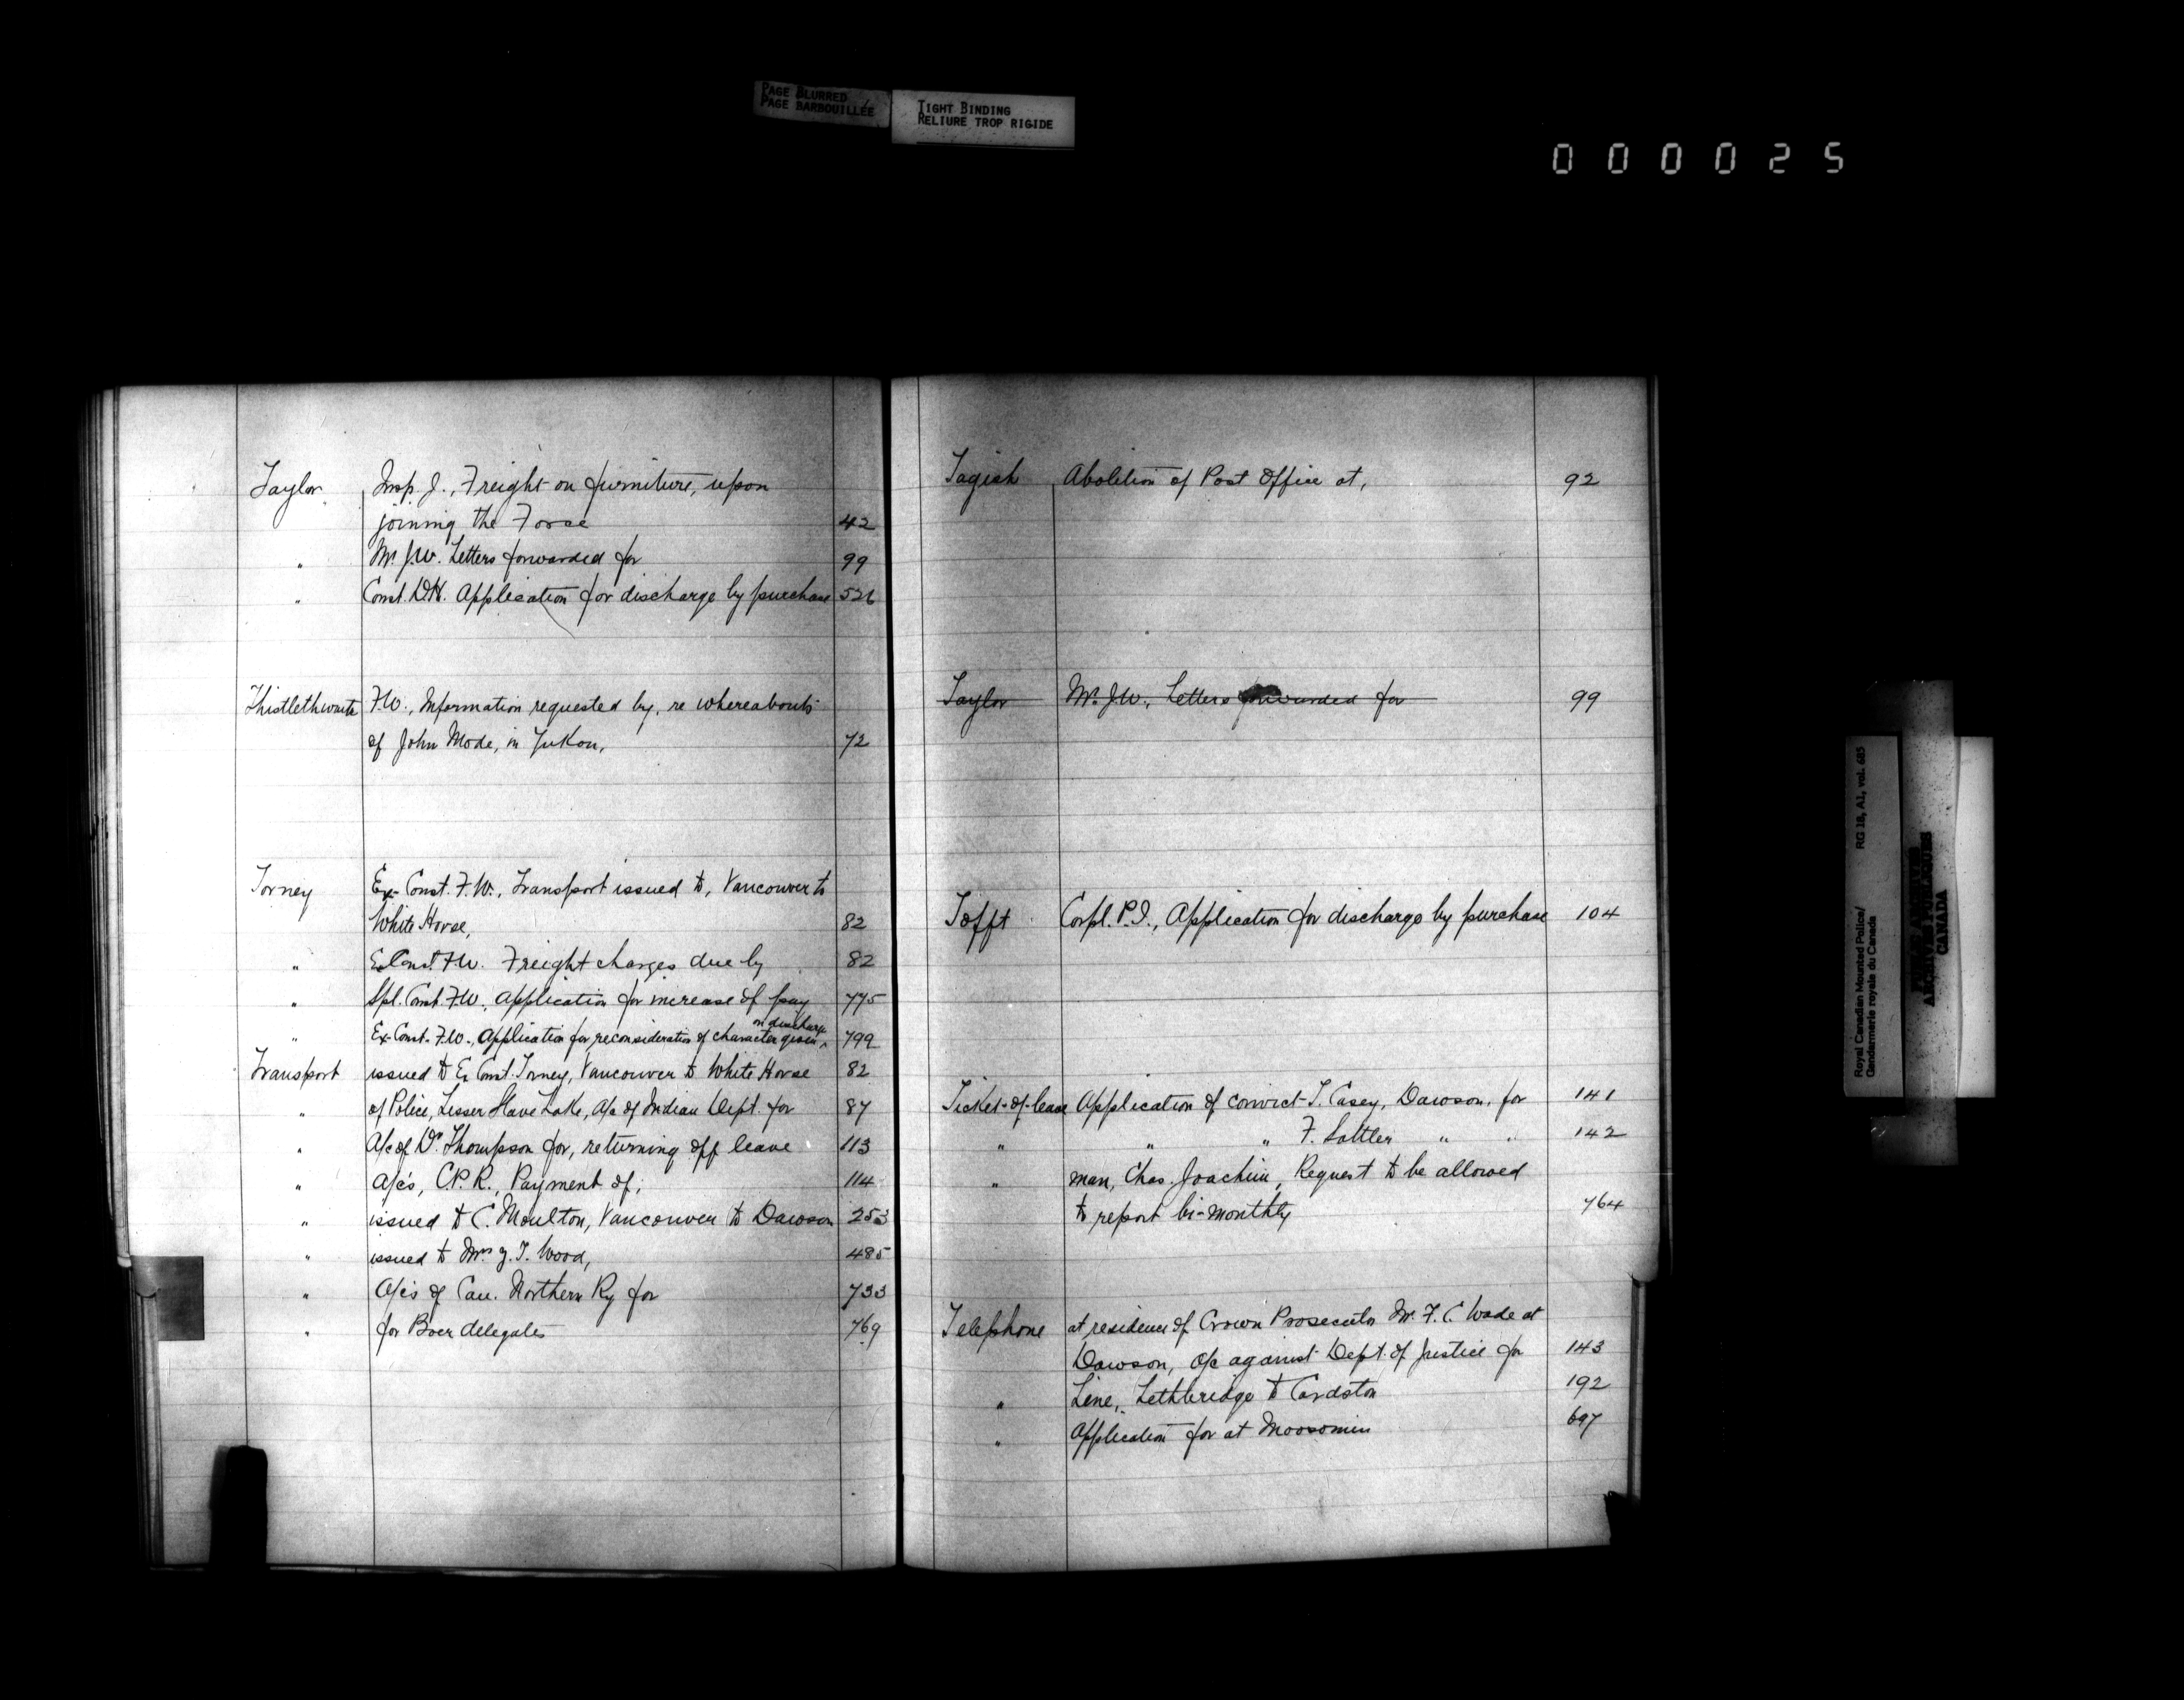 PAGE BLURRED
PAGE BARBOUILLÉE
TIGHT BINDING
RELIURE TROP RIGIDE
000025
Taylor Insp. J., Freight on furniture, upon
joining the Force 42
" Mr. J.W. Letters forwarded for 99
" Const. D.H. Application for discharge by purchase 526
Thistlethwaite F.W., Information requested by, re whereabouts
of John Mode, in Yukon, 72
Torney Ex-Const. F.W., Transport issued to, Vancouver to
White Horse, 82
" Ex Const. F.W. Freight charges due by 82
" Spl. Const. F.W., Application for increase of pay 775
" Ex-Const. F.W., Application for reconsideration of character given on discharge 799
Transport issued to Ex Const. Torney, Vancouver to White Horse 82
" of Police, Lesser Slave Lake, A/c of Indian Dept. for 87
" A/c of Dr. Thompson for, returning off leave 113
" A/c's, C.P.R., Payment of, 114
" issued to C. Moulton, Vancouver to Dawson 253
" issued to Mrs Z.T. Wood, 485
" A/c's of Can. Northern Ry for 733
" for Boer delegates 769
Tagish Abolition of Post Office at, 92
Taylor Mr. J.W., Letters forwarded for 99
Tofft Corpl. P.J., Application for discharge by purchase 104
Ticket-of-leave Application of convict T. Casey, Dawson, for 141
" " " F. Sattler " " 142
" man, Chas. Joachim, Request to be allowed
to report bi-monthly 764
Telephone at residence of Crown Prosecutor Mr. F.C. Wade at
Dawson, a/c against Dept. of Justice for 143
" Line, Lethbridge to Cardston 192
" Application for at Moosomin 697
Royal Canadian Mounted Police/ RG 18, A1, vol. 685
Gendarmerie royale du Canada
PUBLIC ARCHIVES
ARCHIVES PUBLIQUES
CANADA